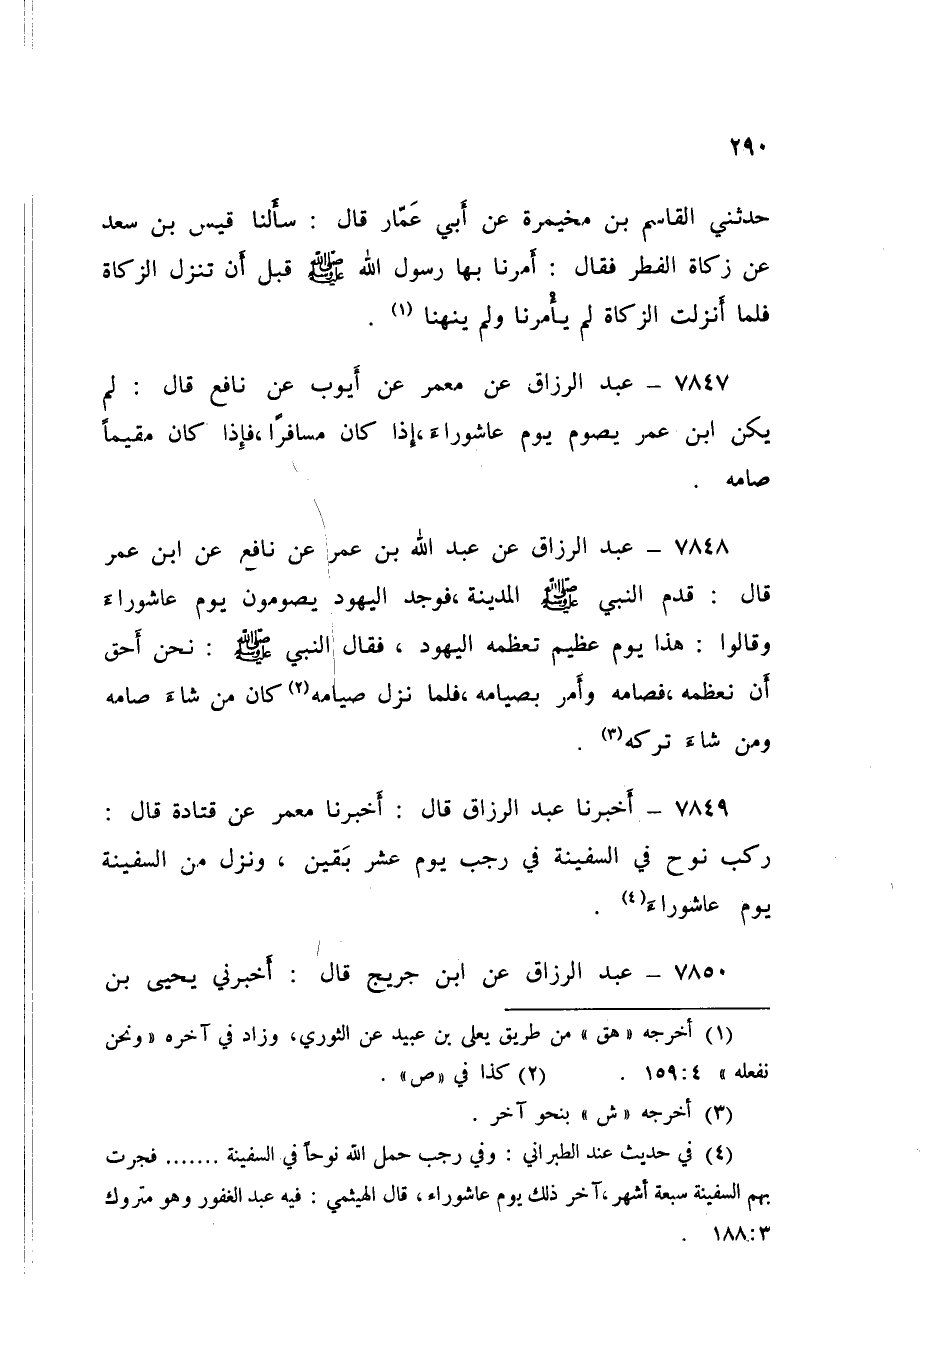 ٢٩٠
حدثني القاسم بن مخيمرة عن أبي عَمّار قال : سألنا قيس بن سعد
عن زكاة الفطر فقال : أمرنا بها رسول الله ﷺ قبل أن تنزل الزكاة
فلما أُنزلت الزكاة لم يأمرنا ولم ينهنا (١) .
٧٨٤٧ – عبد الرزاق عن معمر عن أيوب عن نافع قال : لم
يكن ابن عمر يصوم يوم عاشوراءَ ،إذا كان مسافرًا ،فإذا كان مقيماً
صامه .
٧٨٤٨ – عبد الرزاق عن عبد الله بن عمر عن نافع عن ابن عمر
قال : قدم النبي ﷺ المدينة ،فوجد اليهود يصومون يوم عاشوراءَ
وقالوا : هذا يوم عظيم تعظمه اليهود ، فقال النبي ﷺ : نحن أحق
أن نعظمه ،فصامه وأمر بصيامه ،فلما نزل صيامه(٢) كان من شاءَ صامه
ومن شاءَ تركه(٣) .
٧٨٤٩ – أخبرنا عبد الرزاق قال : أخبرنا معمر عن قتادة قال :
ركب نوح في السفينة في رجب يوم عشر بَقين ، ونزل من السفينة
يوم عاشوراءَ(٤) .
٧٨٥٠ – عبد الرزاق عن ابن جريج قال : أخبرني يحيى بن
(١) أخرجه « هق » من طريق يعلى بن عبيد عن الثوري، وزاد في آخره « ونحن
نفعله » ٤ :١٥٩ . (٢) كذا في «ص» .
(٣) أخرجه « ش » بنحو آخر .
(٤) في حديث عند الطبراني : وفي رجب حمل الله نوحاً في السفينة ....... فجرت
بهم السفينة سبعة أشهر ،آخر ذلك يوم عاشوراء ، قال الهيثمي : فيه عبد الغفور وهو متروك
٣ :١٨٨ .